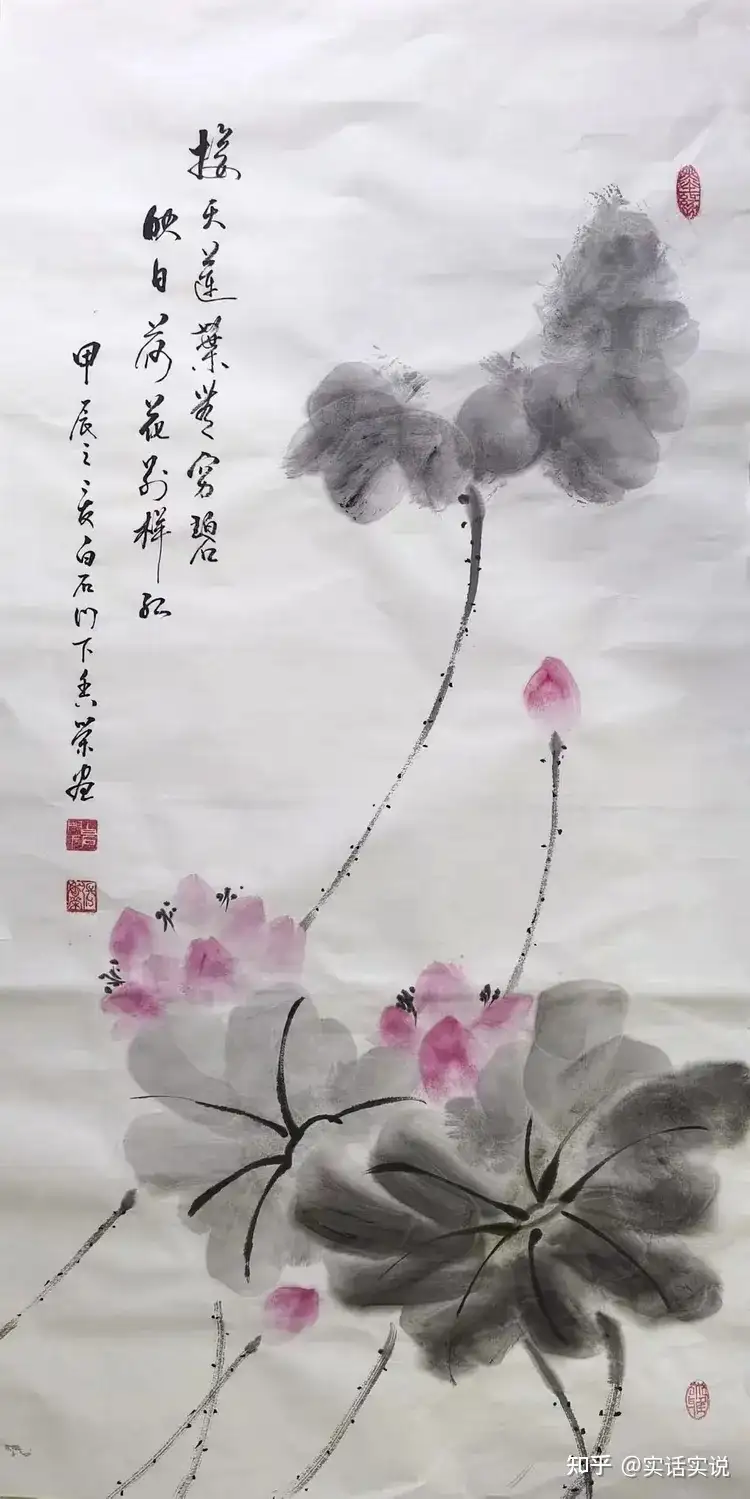 接天蓮葉無穷碧
映日荷花别样红
甲辰之夏白石门下香荣画
知乎 @实话实说